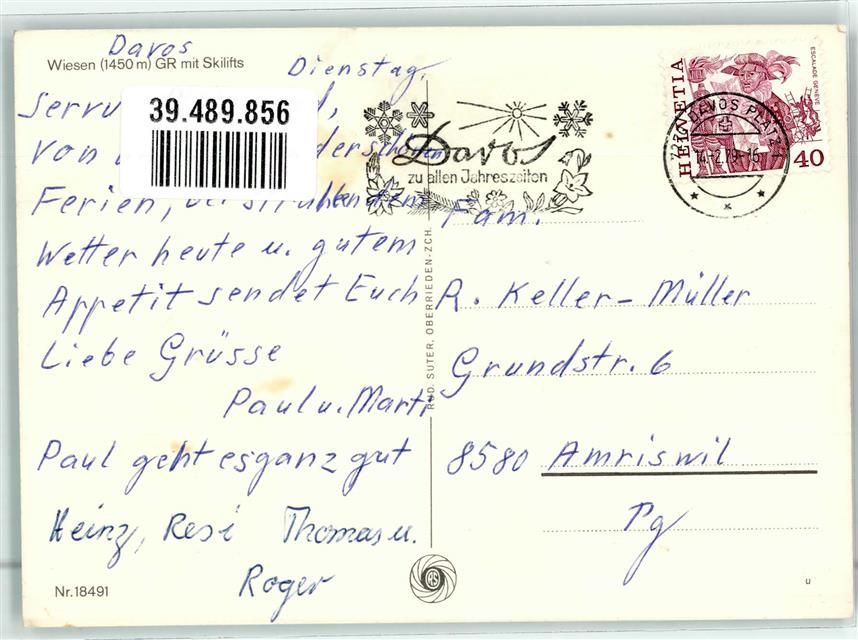 Davos
Wiesen (1450 m) GR mit Skilifts
Dienstag,
39.489.856
Von
Ferien,
Wetter heute u. gutem
Appetit sendet Euch
Liebe Grüsse
Paul u. Marti
Paul geht es ganz gut
Heinz, Resi Thomas u.
Roger
Nr. 18491
Davos
zu allen Jahreszeiten
RUD. SUTER, OBERRIEDEN-ZCH.
HELVETIA
ESCALADE GENÈVE
40
DAVOS PLATZ 1
14.-2.79-15
Fam.
R. Keller-Müller
Grundstr. 6
8580 Amriswil
u